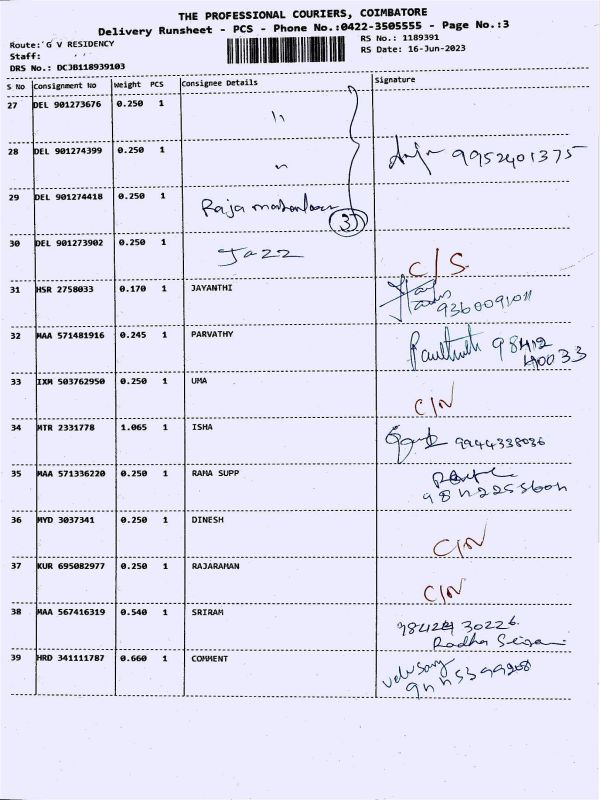 THE PROFESSIONAL COURIERS, COIMBATORE
Delivery Runsheet - PCS - Phone No.:0422-3505555 - Page No.:3
Route: G V RESIDENCY
RS No.: 1189391
Staff:
RS Date: 16-Jun-2023
DRS No.: DCJB118939103
S No Consignment No Weight PCS Consignee Details Signature
27 DEL 901273676 0.250 1 "
28 DEL 901274399 0.250 1 " 9952401375
29 DEL 901274418 0.250 1 Raja
3
30 DEL 901273902 0.250 1 Jazz C/S
31 HSR 2758033 0.170 1 JAYANTHI
9360091011
32 MAA 571481916 0.245 1 PARVATHY 98412
40033
33 IXM 503762950 0.250 1 UMA C/N
34 MTR 2331778 1.065 1 ISHA 9944338036
35 MAA 571336220 0.250 1 RAMA SUPP
36 MYD 3037341 0.250 1 DINESH C/N
37 KUR 695082977 0.250 1 RAJARAMAN C/N
38 MAA 567416319 0.540 1 SRIRAM 30226
Radha
39 HRD 341111787 0.660 1 COMMENT